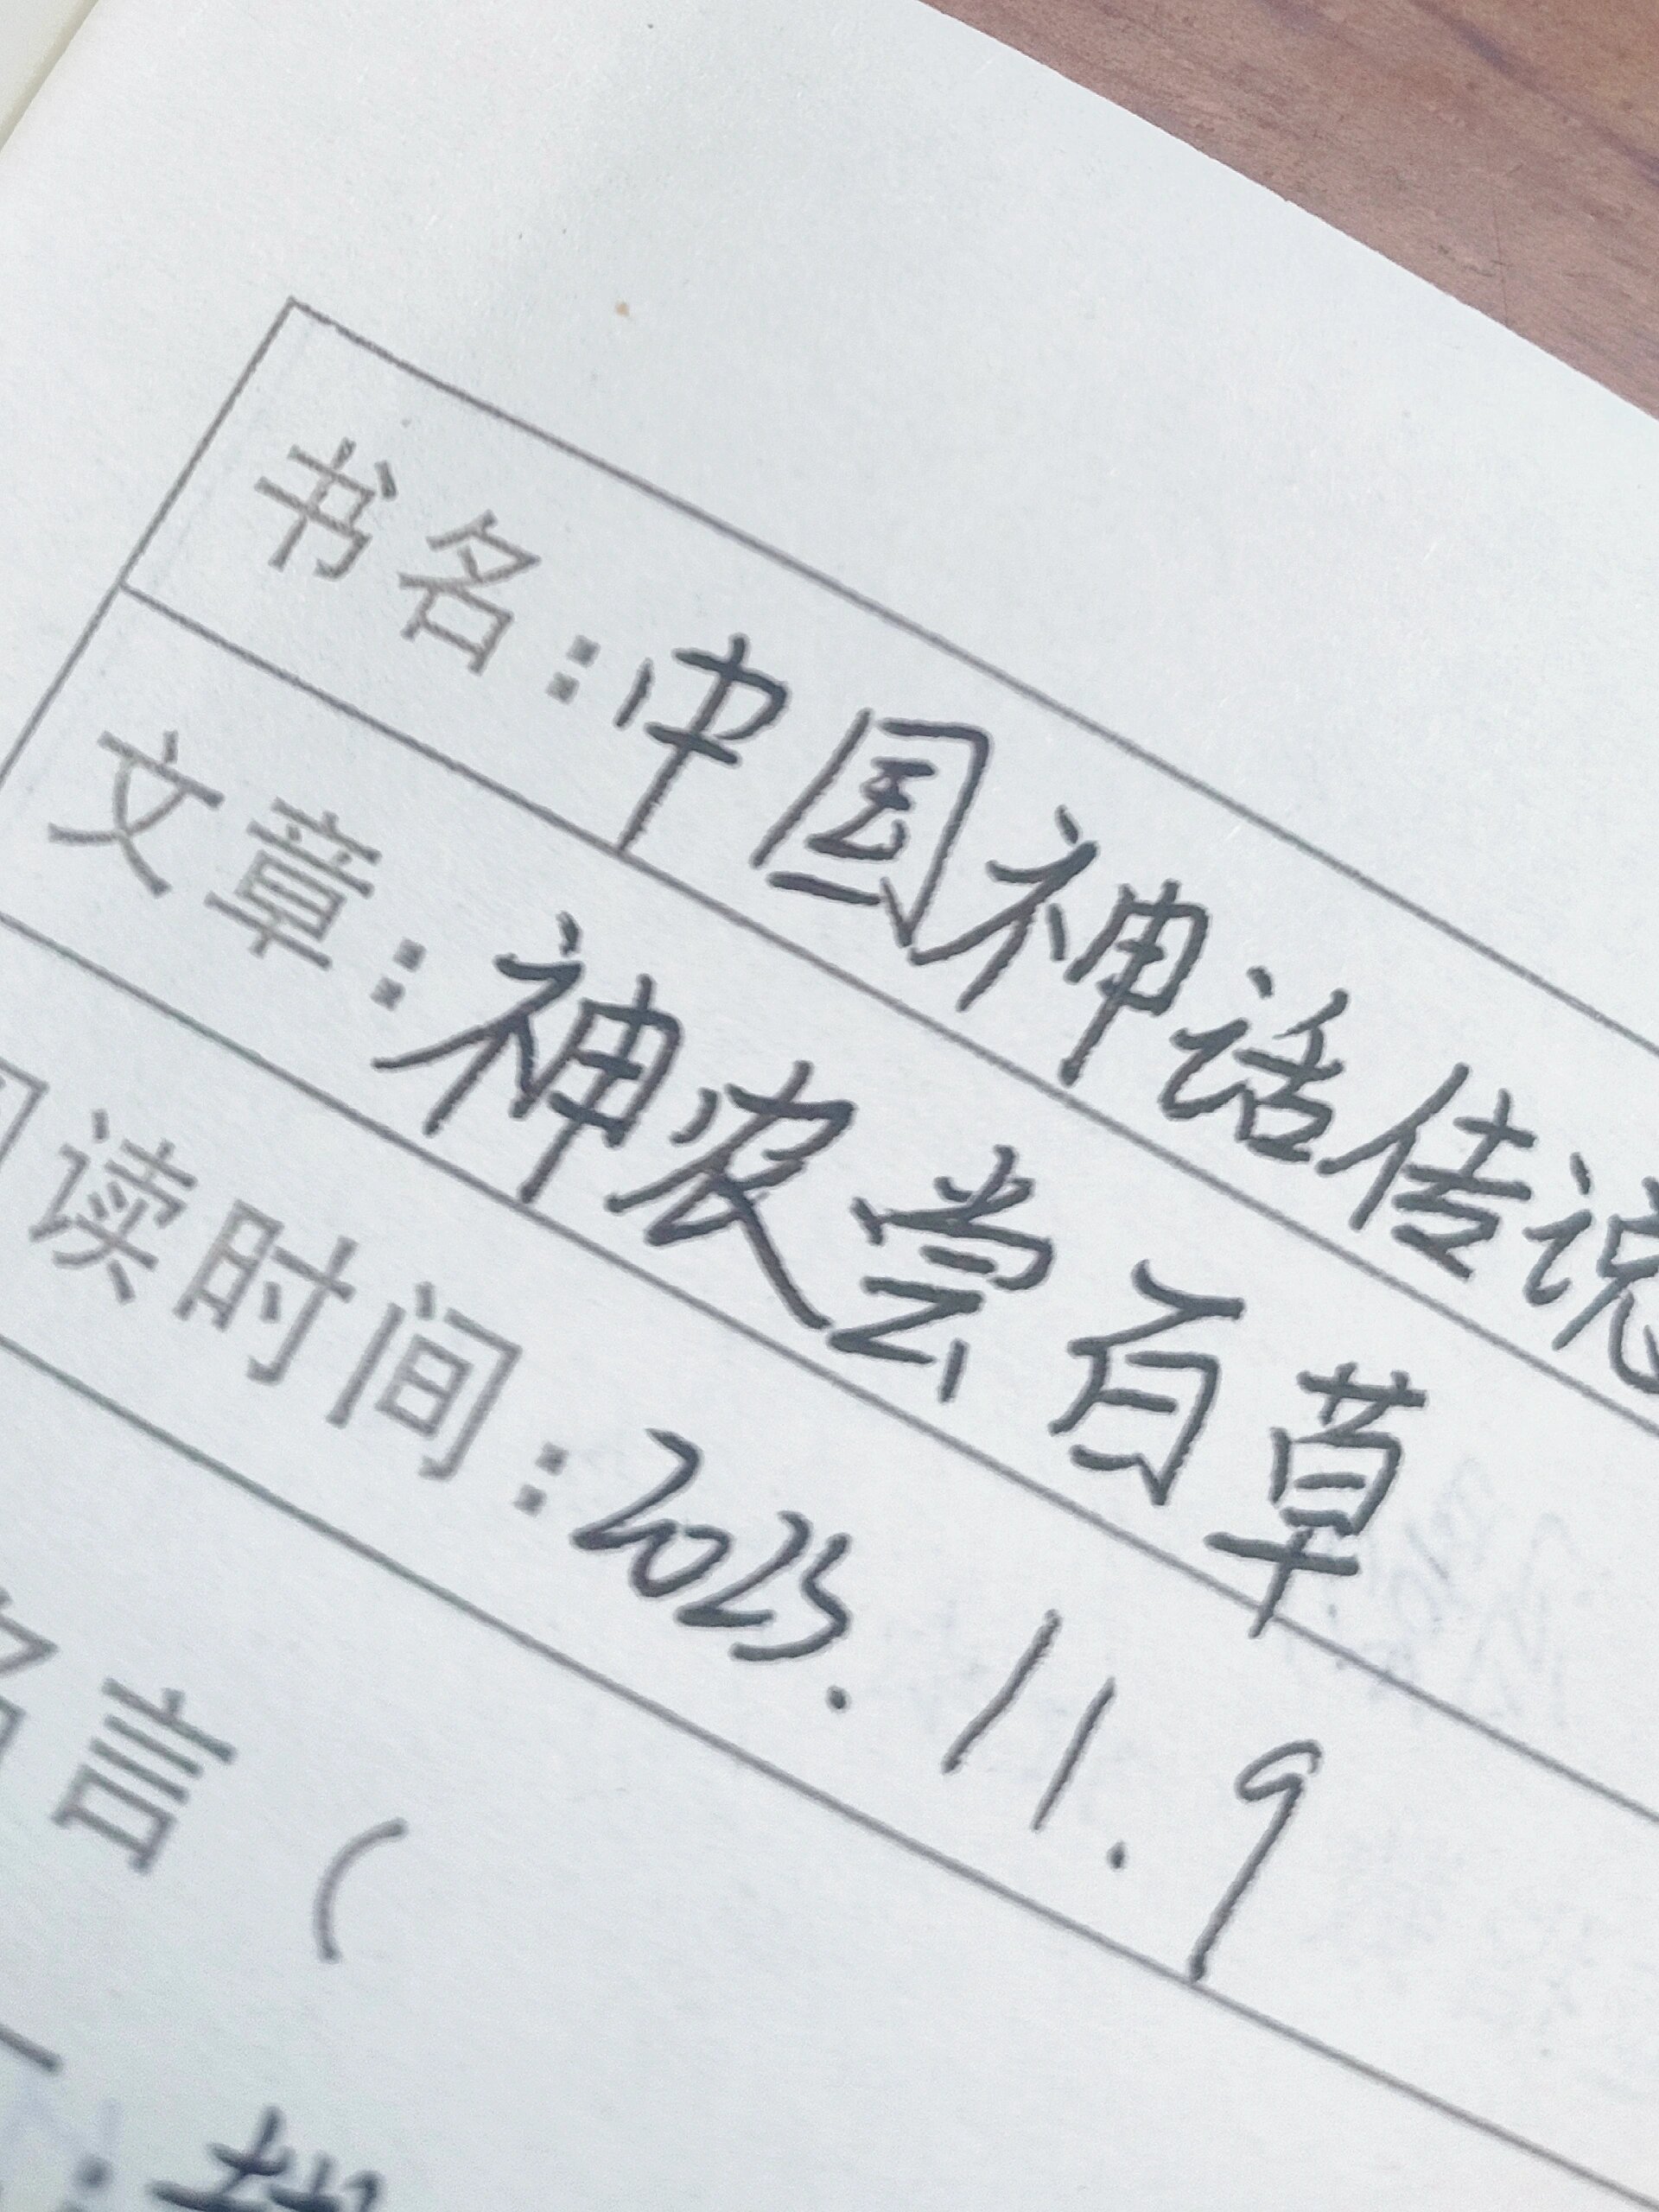 书名：中国神话传说
文章：神农尝百草
阅读时间：2023.11.9
名言（